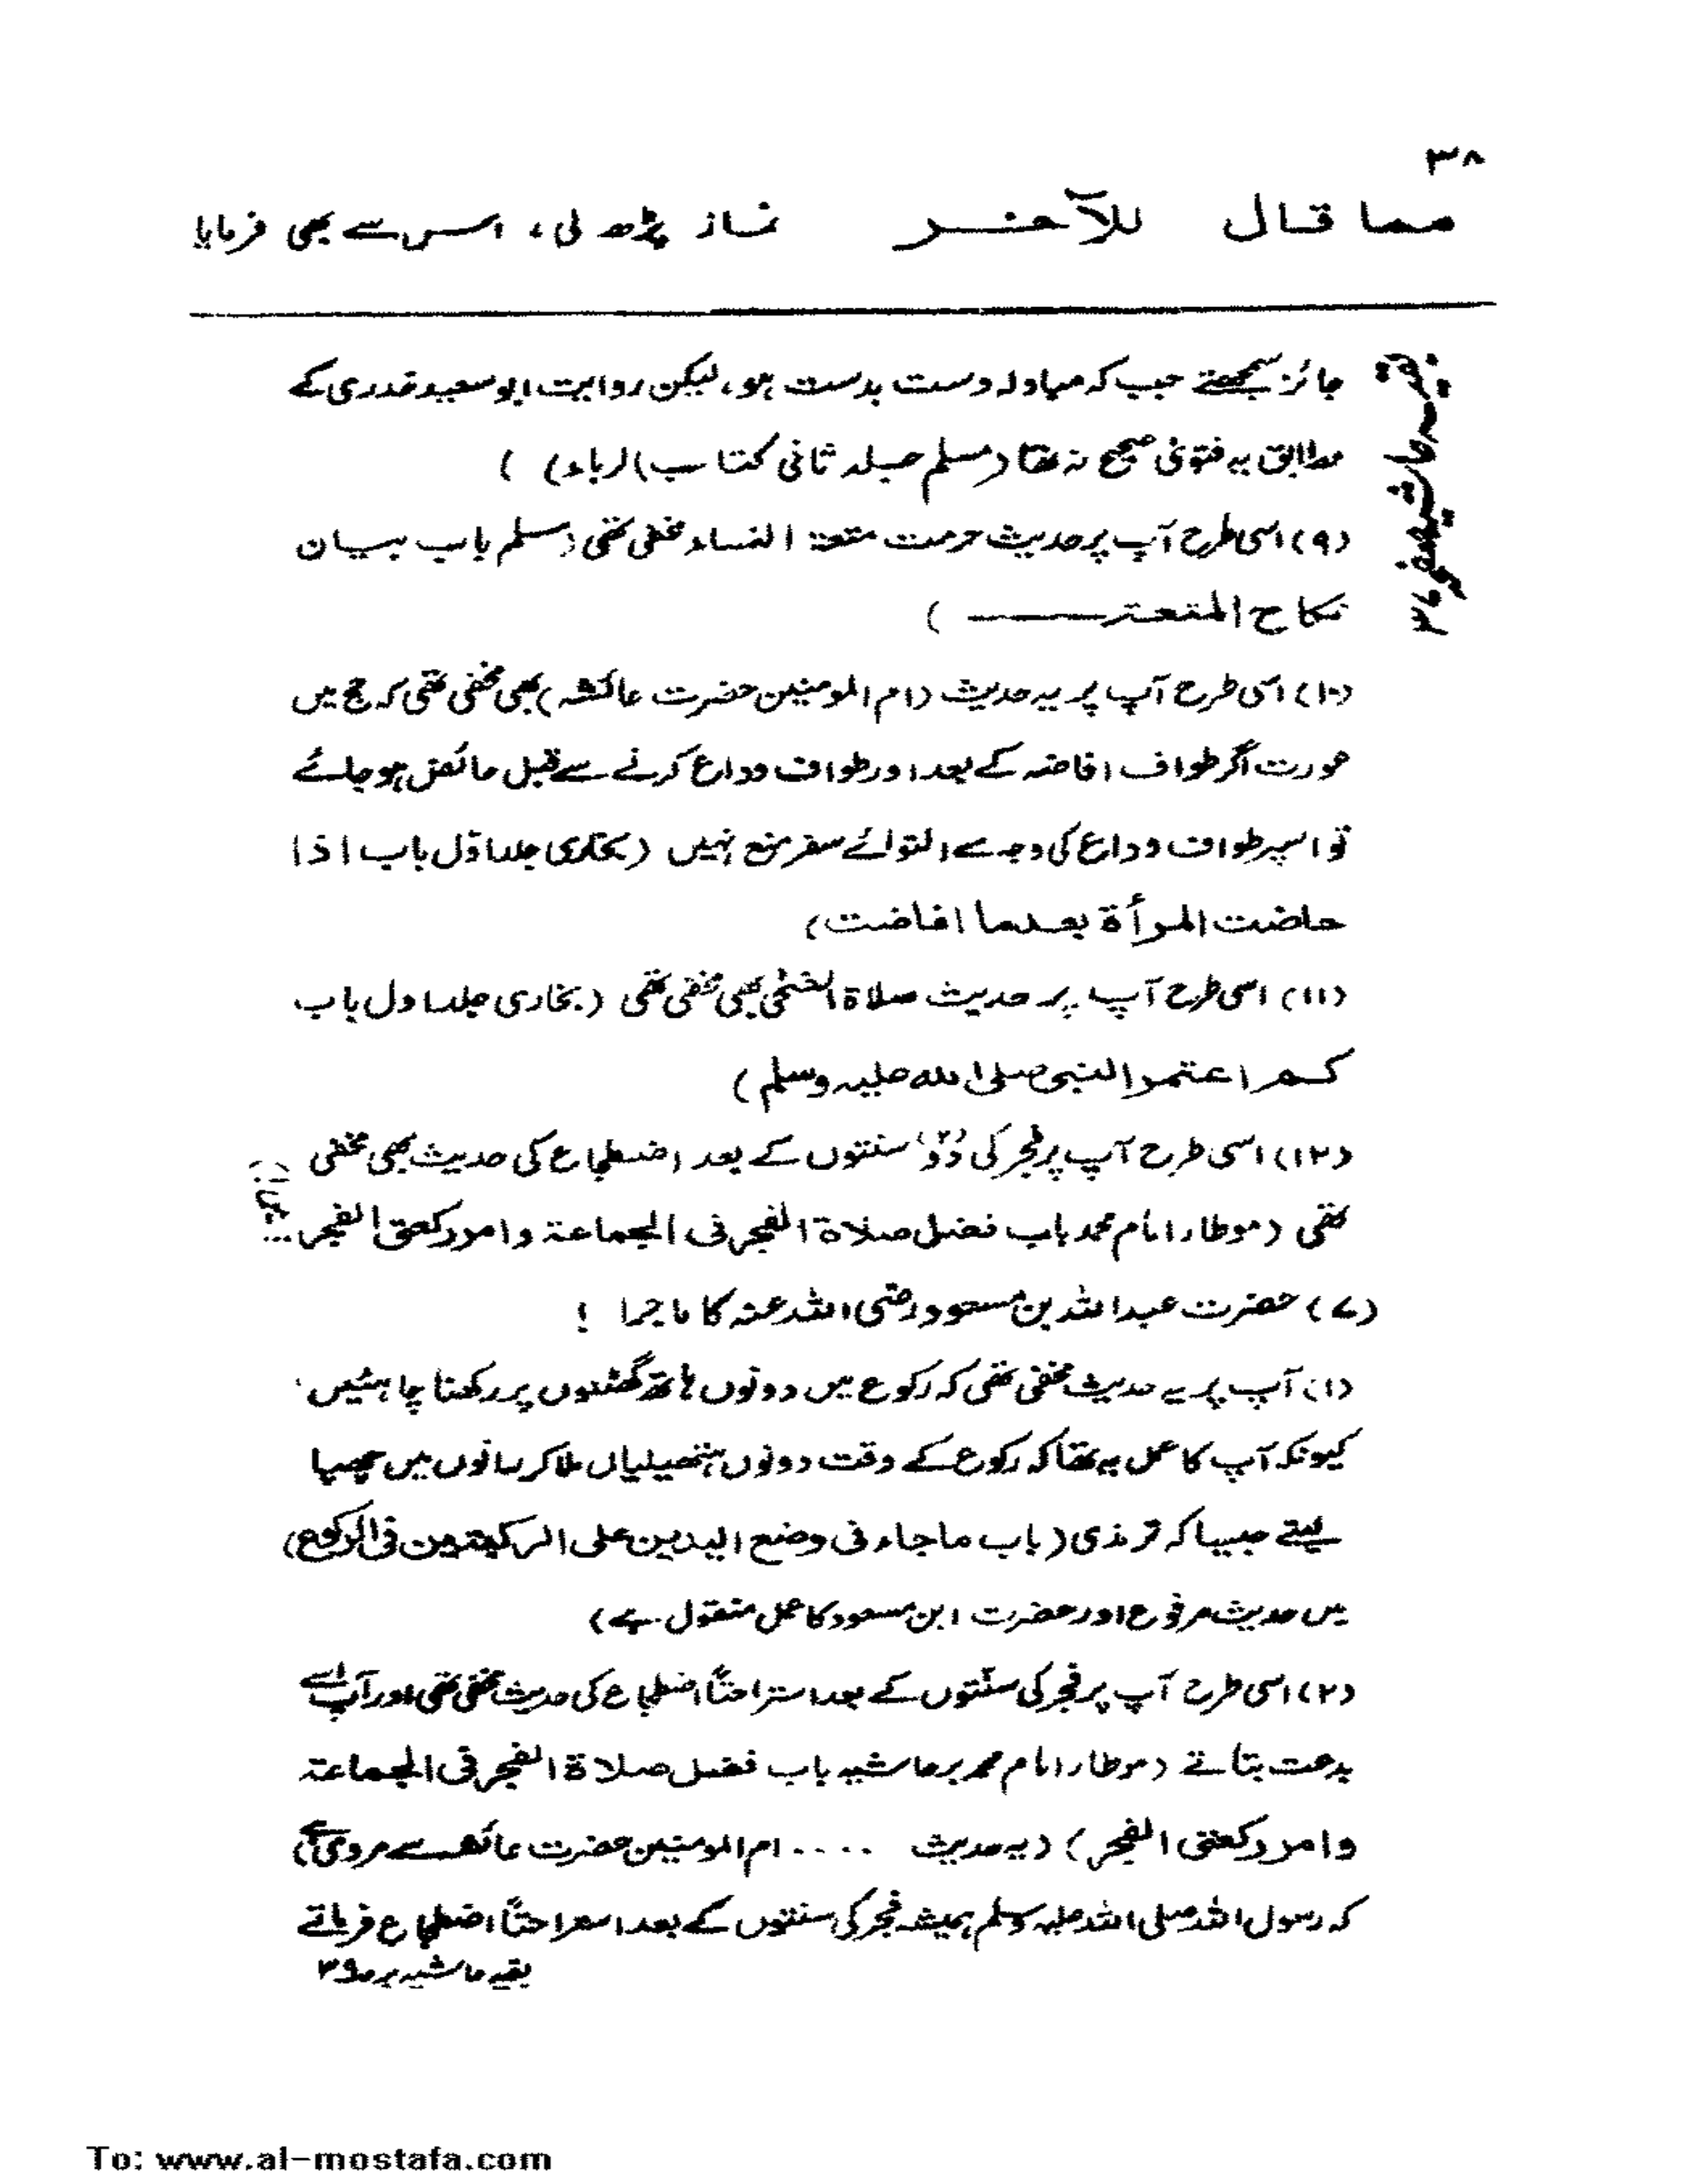 ۳۸
مما قال للآخر نماز پڑھ لی، اس سے بھی فرمایا
بقیہ حاشیہ صفحہ ۳۷
جائز سمجھتے جب کہ مبادلہ دست بدست ہو، لیکن روایت ابو سعید خدری کے
مطابق یہ فتویٰ صحیح نہ تھا (مسلم جلد ثانی کتاب الرباء) )
(۹) اسی طرح آپ پر حدیث حرمت متعۃ النساء مخفی تھی (مسلم باب بیان
نکاح المتعۃ ــــــ )
(۱۰) اسی طرح آپ پر یہ حدیث (ام المومنین حضرت عائشہ) بھی مخفی تھی کہ حج میں
عورت اگر طواف افاضہ کے بعد اور طواف وداع کرنے سے قبل حائض ہو جائے
تو اسپر طواف وداع کی وجہ سے التوائے سفر منع نہیں (بخاری جلد اوّل باب اذا
حاضت المرأۃ بعد ما افاضت)
(۱۱) اسی طرح آپ پر حدیث صلاۃ الضحٰی بھی مخفی تھی (بخاری جلد اول باب
کم اعتمر النبی صلی اللہ علیہ وسلم)
(۱۲) اسی طرح آپ پر فجر کی دو (۲) سنتوں کے بعد اضطجاع کی حدیث بھی مخفی
تھی (موطاء امام محمد باب فضل صلاۃ الفجر فی الجماعۃ وامر رکعتی الفجر ...
(۷) حضرت عبد اللہ بن مسعود رضی اللہ عنہ کا ماجرا !
(۱) آپ پر یہ حدیث مخفی تھی کہ رکوع میں دونوں ہاتھ گھٹنوں پر رکھنا چاہئیں،
کیونکہ آپ کا عمل یہ تھا کہ رکوع کے وقت دونوں ہتھیلیاں ملا کر رانوں میں چھپا
لیتے جیسا کہ ترمذی (باب ماجاء فی وضع الیدین علی الرکبتین فی الرکوع)
میں حدیث مرفوع اور حضرت ابن مسعود کا عمل منقول ہے)
(۲) اسی طرح آپ پر فجر کی سنّتوں کے بعد استراحتاً اضطجاع کی حدیث مخفی تھی اور آپ اسے
بدعت بتاتے (موطاء امام محمد بر حاشیہ باب فضل صلاۃ الفجر فی الجماعۃ
وامر رکعتی الفجر) (یہ حدیث .... ام المومنین حضرت عائشہ سے مروی ہے)
کہ رسول اللہ صلی اللہ علیہ وسلم ہمیشہ فجر کی سنتوں کے بعد استراحتاً اضطجاع فرماتے
بقیہ حاشیہ بر ص ۳۹
To: www.al-mostafa.com